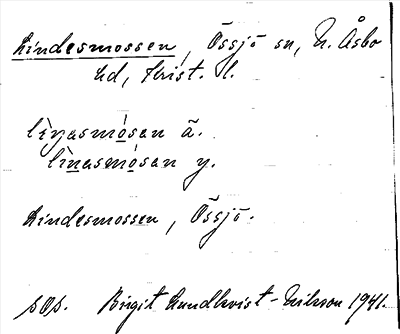 Lindesmossen, Össjö sn, N. Åsbo
hd, Krist. l.
lìnasmósan ä.
lìnasmósan y.
Lindesmossen, Össjö.
sos. Birgit Lundkvist-Nilsson 1941.